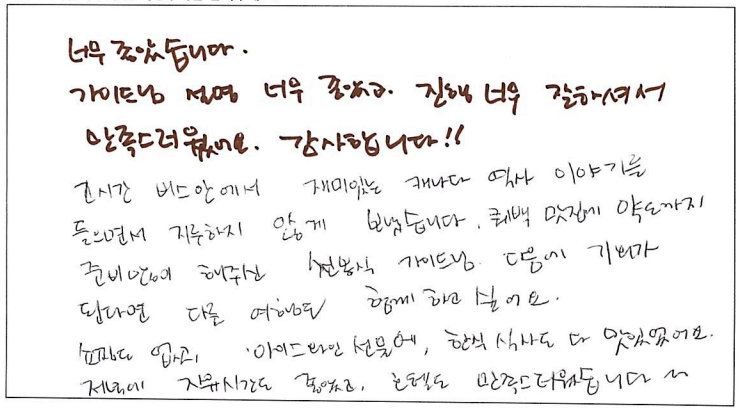 너무 좋았습니다.
가이드님 설명 너무 좋았고. 진행 너무 잘하셔서
만족스러웠어요. 감사합니다!!
긴시간 버스안에서 재미있는 캐나다 역사 이야기를
들으면서 지루하지 않게 보냈습니다. 퀘백 맛집에 약도까지
준비없이 해주신 가이드님. 다음에 기회가
된다면 다른 여행도 함께 하고 싶어요.
쇼핑도 없고, 아이스와인 선물에, 한식 식사도 다 맛있었어요.
저녁에 자유시간도 좋았고, 호텔도 만족스러웠습니다 ~